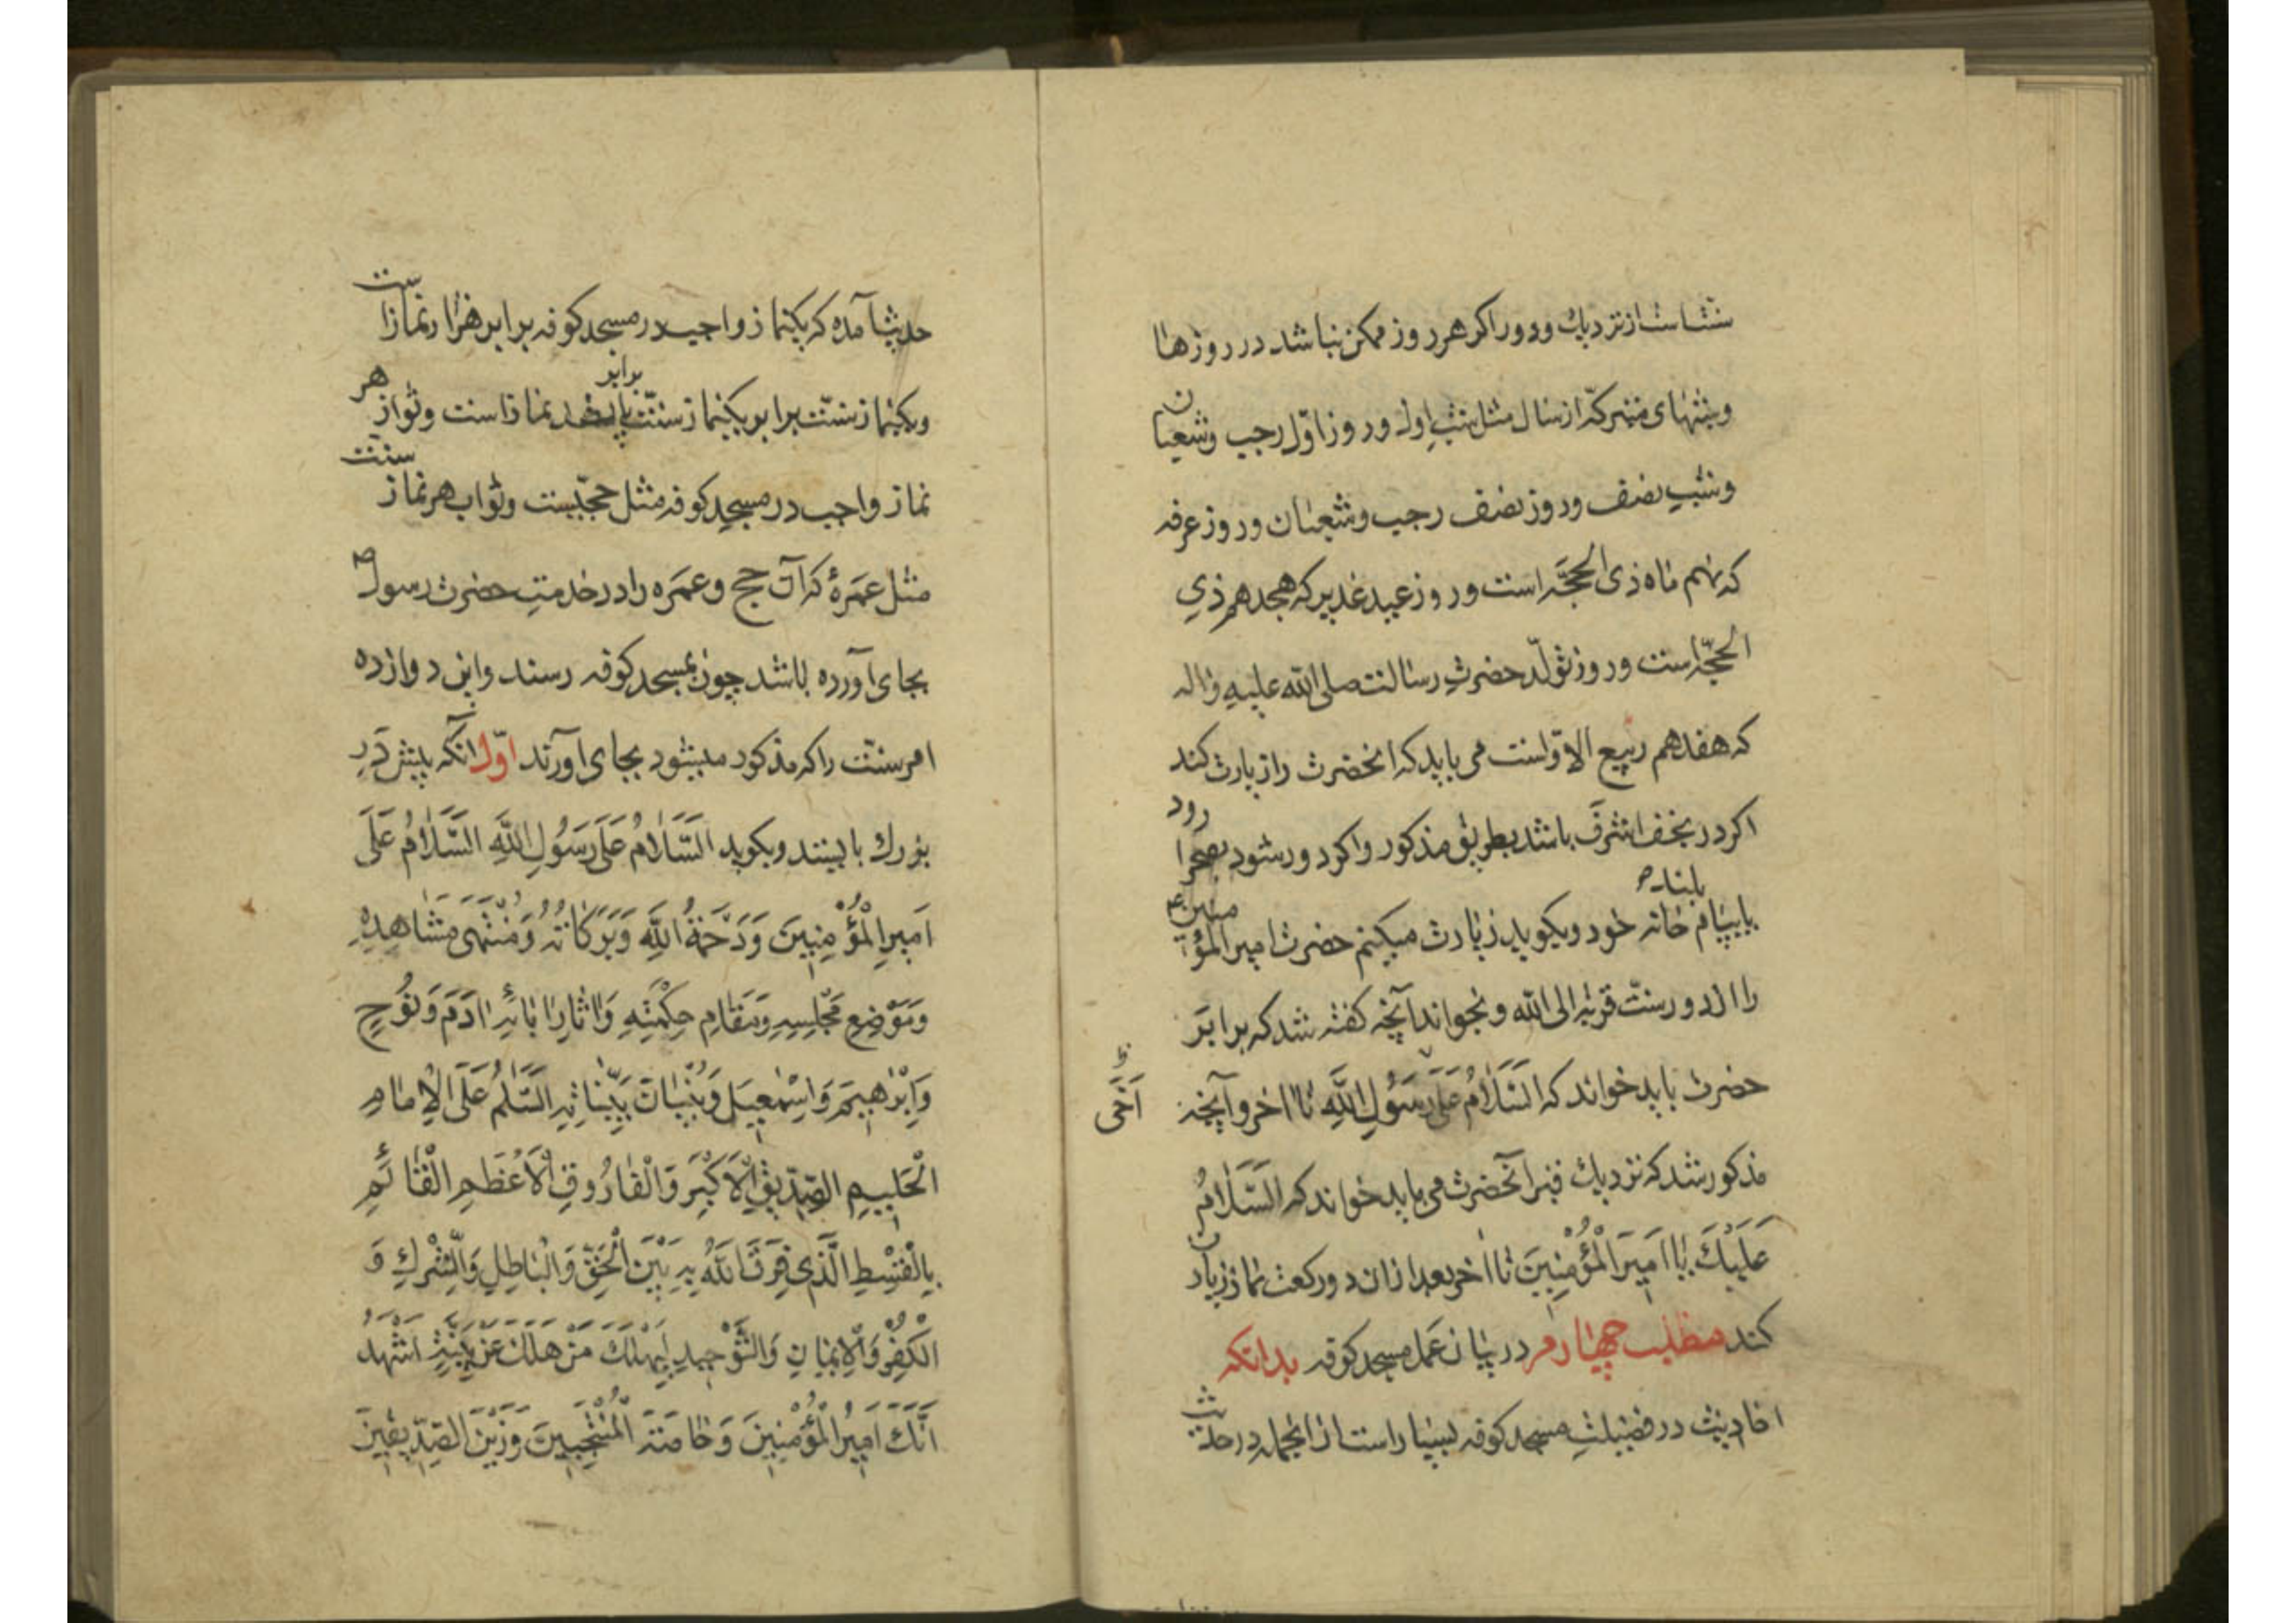 سنت است از نزدیك و دور اکر هر روز ممکن نباشد در روزها
و شبهای متبرکه از سال مثل شب اول و روز اوّل رجب و شعبان
و شب نصف و روز نصف رجب و شعبان و روز عرفه
که نهم ماه ذی الحجّه است و روز عید غدیر که هجدهم ذی
الحجّه است و روز تولّد حضرتِ رسالت صلی الله علیه واله
که هفدهم ربیع الاوّلست می باید که انحضرت را زیارت کند
اکر در نجف اشرف باشد بطریق مذکور و اکر دور شود بصحرا رود
یا ببام خانه بلند خود و بکوید زیارت میکنم حضرت امیر المؤمنین
را از دور سنّت قربة الی الله و بخواند آنچه کفته شد که برابر
حضرت باید خواند که السَّلَامُ عَلَی رَسُولِ اللَّهِ تا اخر و آنچه
اَخَی
مذکور شد که نزدیك قبر آنحضرت می باید خواند که السَّلَامُ
عَلَیْكَ یَا اَمِیرَ الْمُؤْمِنِینَ تا اخر بعد از ان دو رکعت نماز زیارت
کند مطلب چهارم در بیان عمل مسجد کوفه بدانکه
احادیث در فضیلتِ مسجد کوفه بسیار است از انجمله در حدیث
حدیث آمده که یکنماز واجب در مسجد کوفه برابر هزار نماز است
و یکنماز سنّت برابر یکنماز سنّت برابر پانصد نماز است و ثواب هر
نماز واجب در مسجد کوفه مثل حجّیست و ثواب هر نماز سنت
مثل عمرهٔ که آن حج و عمره را در خدمتِ حضرت رسول ص
بجای آورده باشد چون بمسجد کوفه رسند و این دوازده
امر سنّت را که مذکور میشود بجای آورند اوّل آنکه پیش در
بزرك بایستد و بکوید السَّلَامُ عَلَی رَسُولِ اللَّهِ السَّلَامُ عَلَی
اَمِیرِ الْمُؤْمِنِینَ وَرَحْمَةُ اللَّهِ وَبَرَکَاتُهُ وَمُنْتَهَی مَشَاهِدِهِ
وَمَوْضِعِ مَجْلِسِهِ وَمَقَامِ حِکْمَتِهِ وَاثَارِ ابَائِهِ ادَمَ وَنُوحٍ
وَاِبْرٰهِیمَ وَاِسْمٰعِیلَ وَبُنْیَانِ بَیِّنَاتِهِ السَّلٰمُ عَلَی الْاِمَامِ
الْحَلِیمِ الصِّدِّیقِ الْاَکْبَرِ وَالْفَارُوقِ الْاَعْظَمِ الْقَائِمِ
بِالْقِسْطِ الَّذِی فَرَقَ اللَّهُ بِهِ بَیْنَ الْحَقِّ وَالْبَاطِلِ وَالشِّرْكِ وَ
الْکُفْرِ وَالْاِیمَانِ وَالتَّوْحِیدِ لِیَهْلِكَ مَنْ هَلَكَ عَنْ بَیِّنَةٍ اَشْهَدُ
اَنَّكَ اَمِیرُ الْمُؤْمِنِینَ وَخَاصَّةُ الْمُنْتَجَبِینَ وَزَیْنُ الصِّدِّیقِینَ